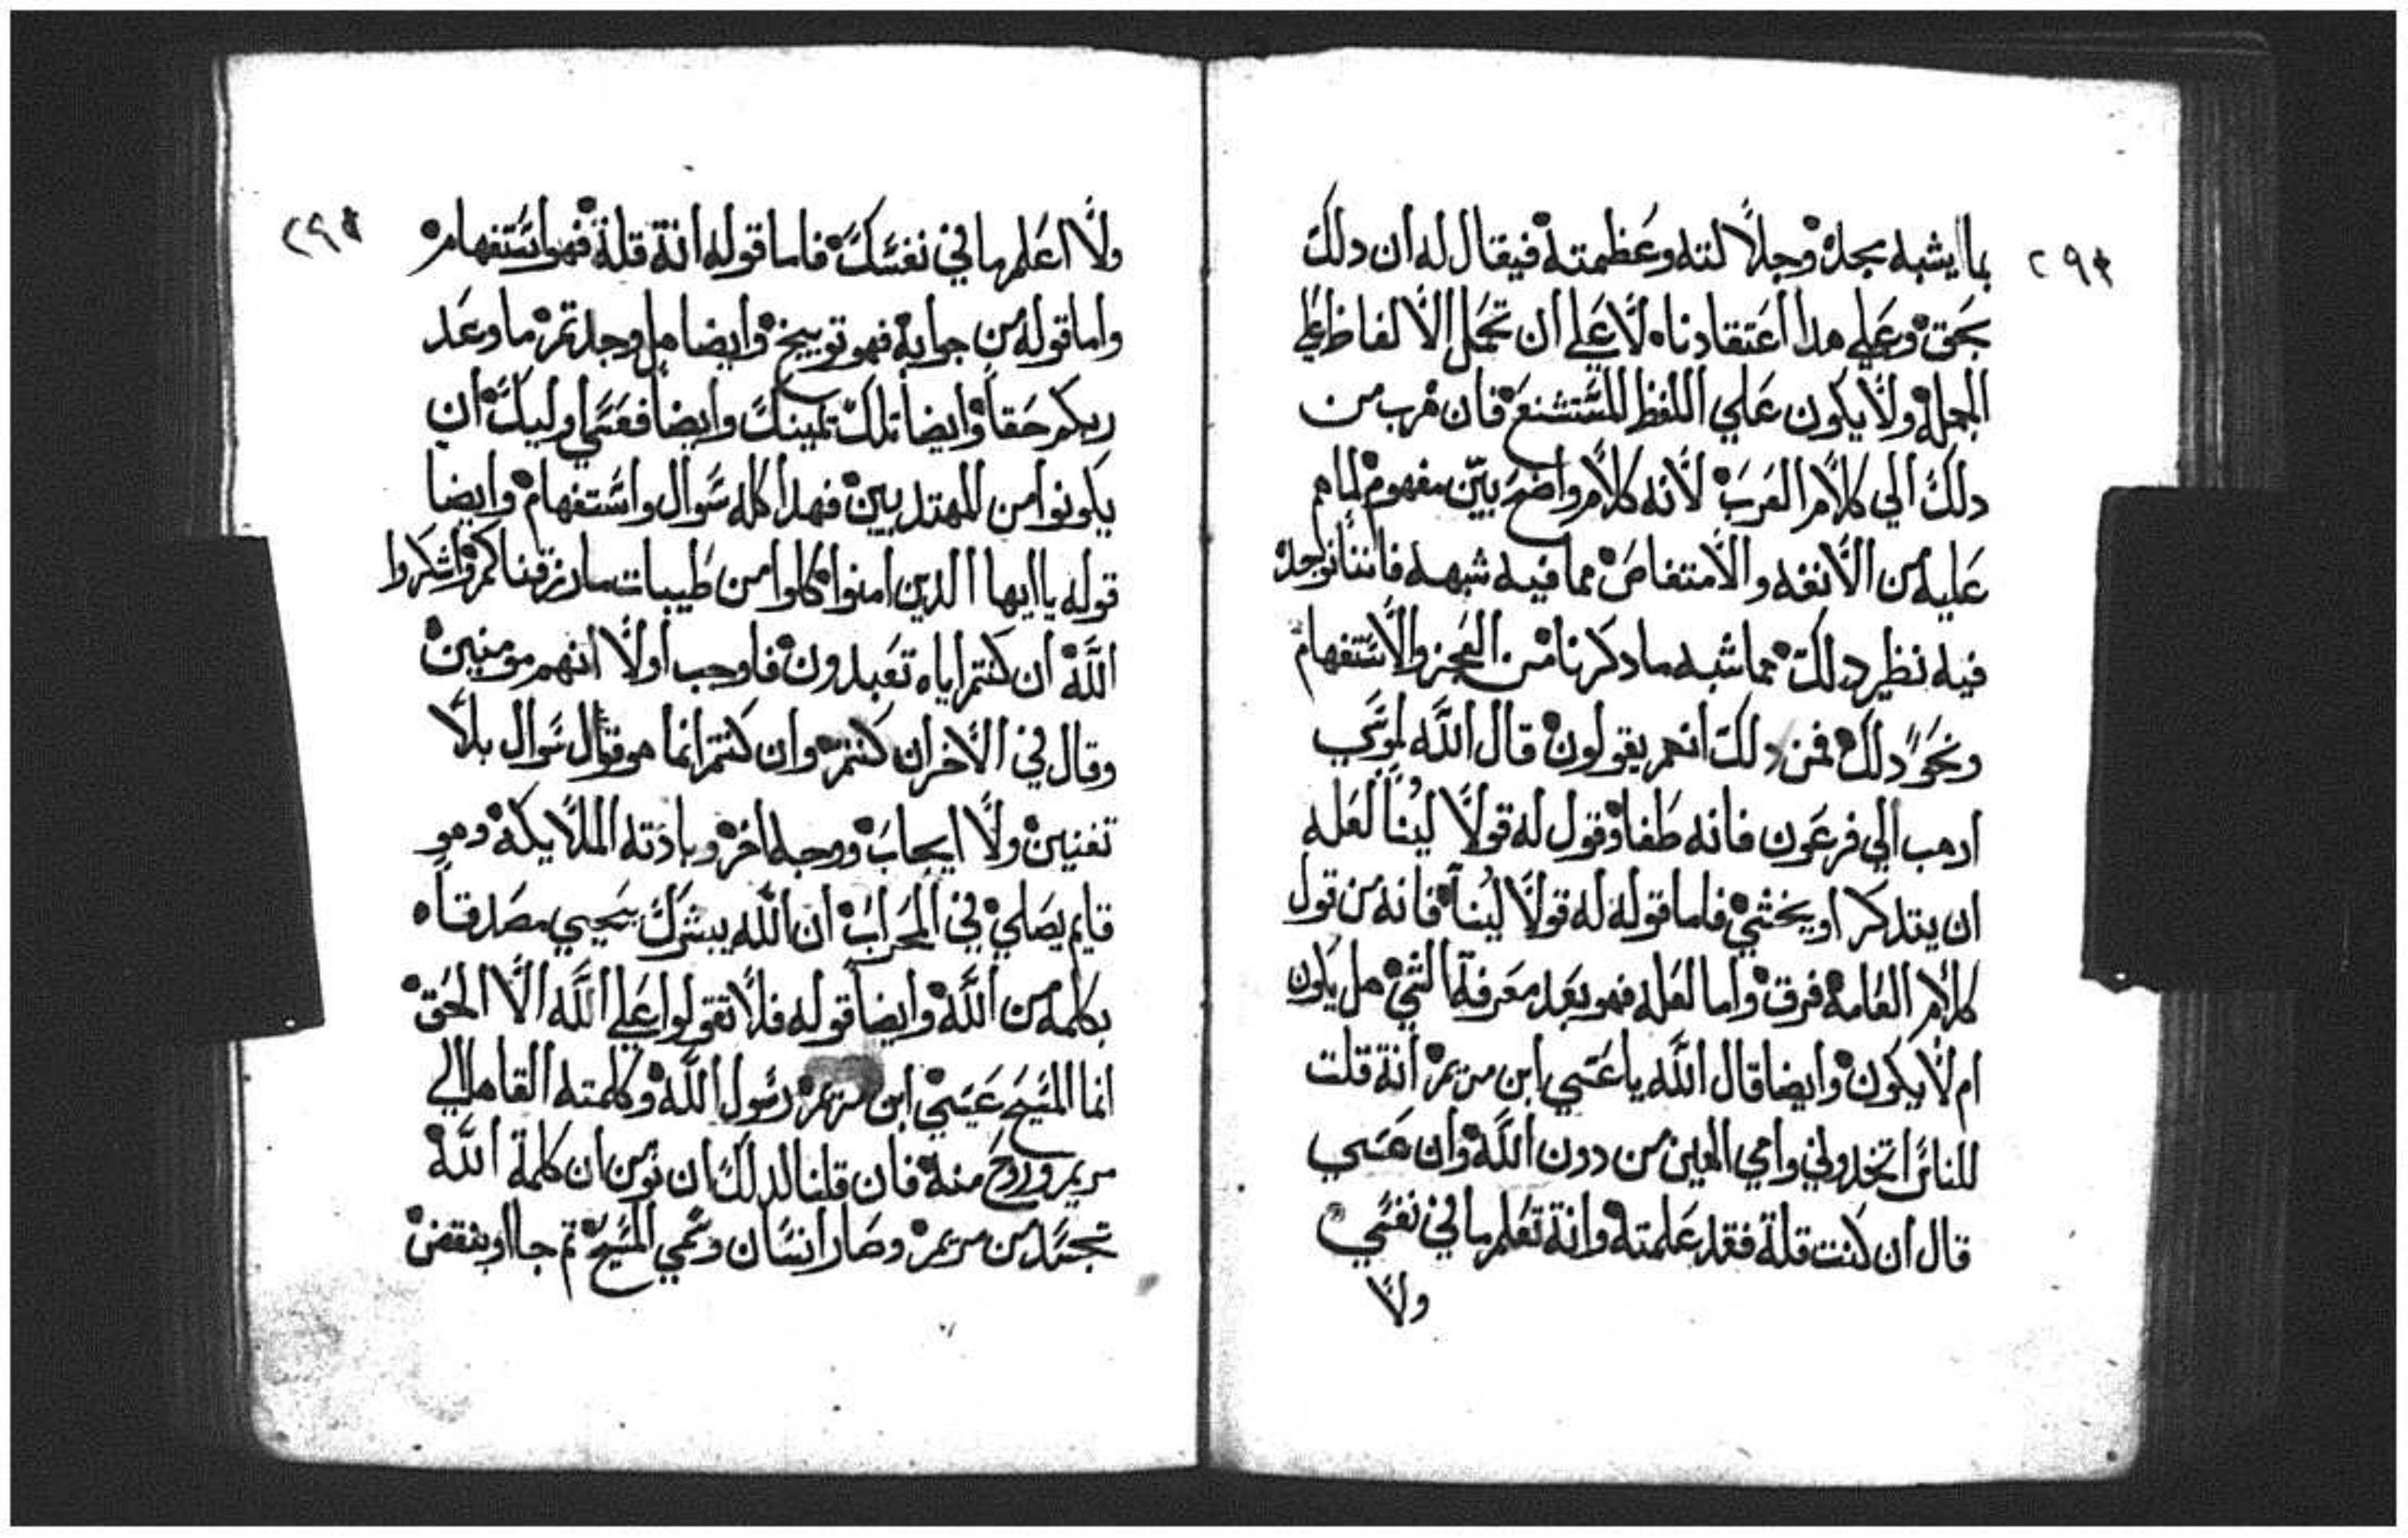 ٢٩٤
بما يشبه مجده وجلالته وعظمته فيقال له ان دلك
بحق وعلي هدا اعتقادناه لا علي ان تحمل الالفاظ علي
الجمله ولا يكون علي اللفظ المستشنع فان هرب من
دلك الي كلام العرب لانه كلام واضح بين مفهوم لما هم
عليه من الانفه والامتفاض مما فيه شبهه فاننا نوجده
فيه نظير دلك مما شبه ما دكرنا من العجز والاستفهام
ونحو دلك فمن دلك انهم يقولون قال الله لموسي
ادهب الي فرعون فانه طغا وقول له قولا لينا لعله
ان يتدكر او يخشي فاما قوله له قولا لينا فانه من قول
كلام العامه فرق واما لعله فهو بعد معرفة الشي هل يكون
ام لا يكون وايضا قال الله يا عسي ابن مريم انة قلت
للناس اتخدوني وامي الهين من دون الله وان عسي
قال ان كنت قلة فقد علمته وانة تعلم ما في نفسي
ولا
٢٩٥
ولا اعلم ما في نفسك فاما قوله انة قلة فهو استفهام
واما قوله من جوابه فهو توبيخ وايضا هل وجدتم ما وعد
ربكم حقا وايضا تلك تمينك وايضا فعسي اوليك ان
يكونوا من المهتديين فهدا كله سوال واستفهام وايضا
قوله يا ايها الدين امنوا كلوا من طيبات ما رزقناكم واشكروا
الله ان كنتم اياه تعبدون فاوجب اولا انهم مومنين
وقال في الاخر ان كنتم وان كنتم انما هو سوال بلا
تفنين ولا ايجاب ووجه اخر وبادته الملايكه وهو
قايم يصلي في المحراب ان الله يبشرك بيحيي مصدقاه
بكلمه من الله وايضا قوله فلا تقولوا علي الله الا الحق
انما المسيح عيسي ابن مريم رسول الله وكلمته القاها الي
مريم وروح منه فان قلنا لدلك ان نومن ان كلمة الله
تجسد من مريم وصار انسان وسمي المسيح تم جا او بنقض